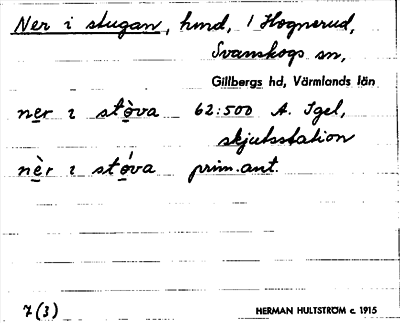 Ner i stugan, hmd, i Högnerud,
Svanskogs sn,
Gillbergs hd, Värmlands län
ner ı stòva 62:500 A. Igel,
skjutsstation
nèr ı stóva prim.ant.
7(3) HERMAN HULTSTRÖM c. 1915